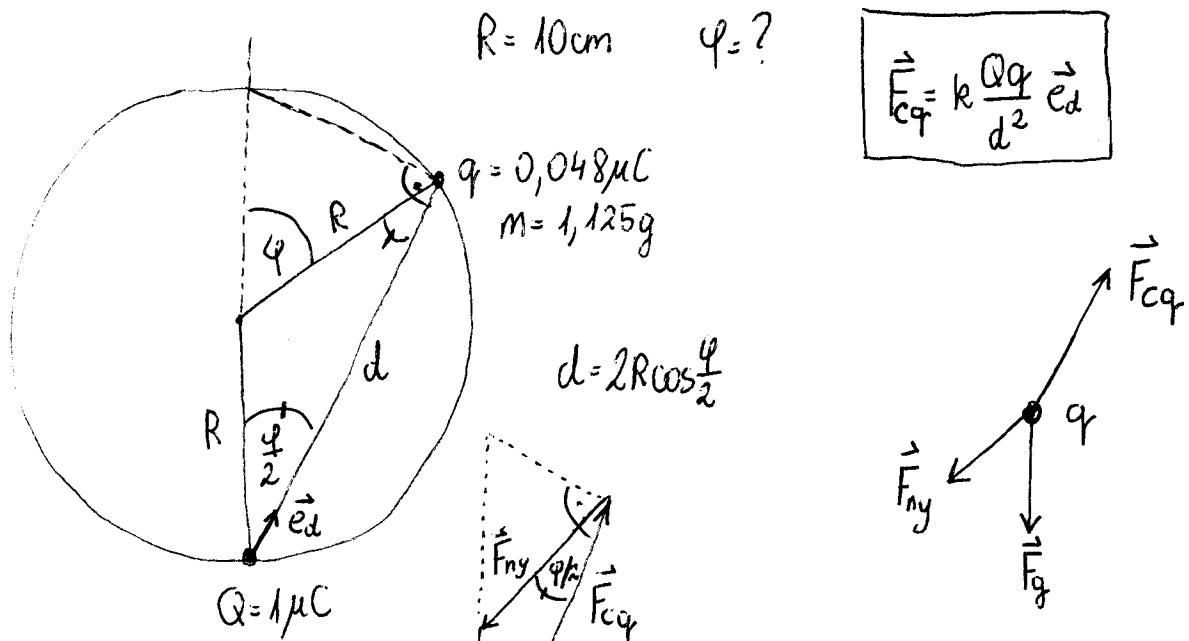 R = 10cm
φ = ?
F⃗cq = k Qq/d² e⃗d
q = 0,048μC
m = 1,125g
R
φ
d
d = 2Rcos φ/2
R
φ/2
e⃗d
Q = 1μC
F⃗ny
φ/2
F⃗cq
F⃗cq
q
F⃗ny
F⃗g